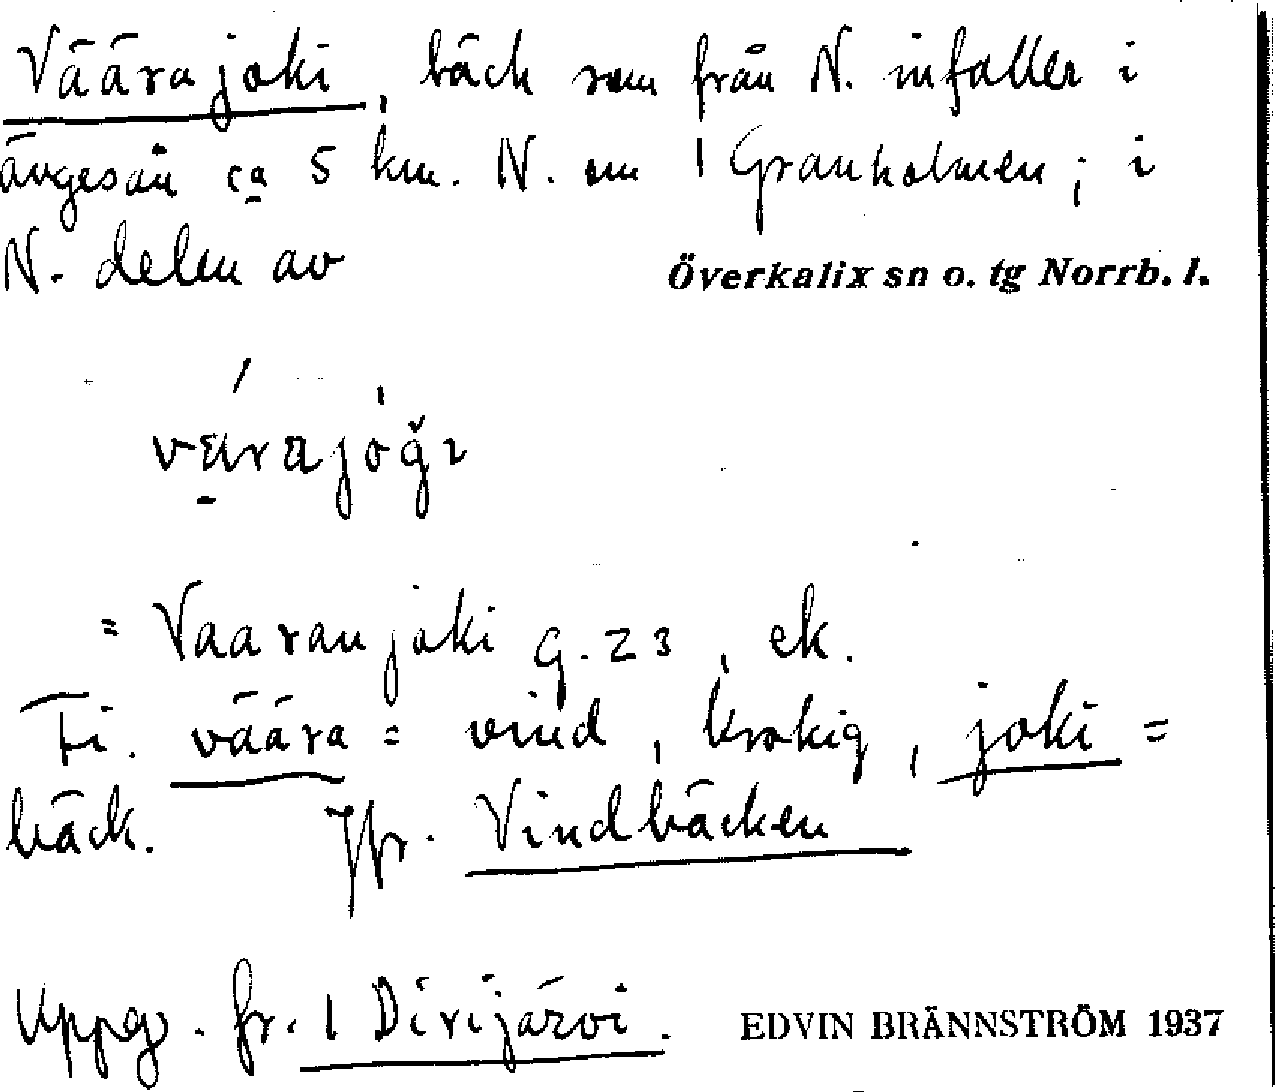 Väärajoki, bäck som från N. infaller i
ängesån ca 5 km. N. om 1 Granholmen; i
N. delen av
Överkalix sn o. tg Norrb. l.
= Vaaranjoki g. 23, ek.
Fi. väära = vind, krokig, joki =
bäck. Jfr. Vindbäcken
Uppg. fr. 1 Dirijärvi.
EDVIN BRÄNNSTRÖM 1937